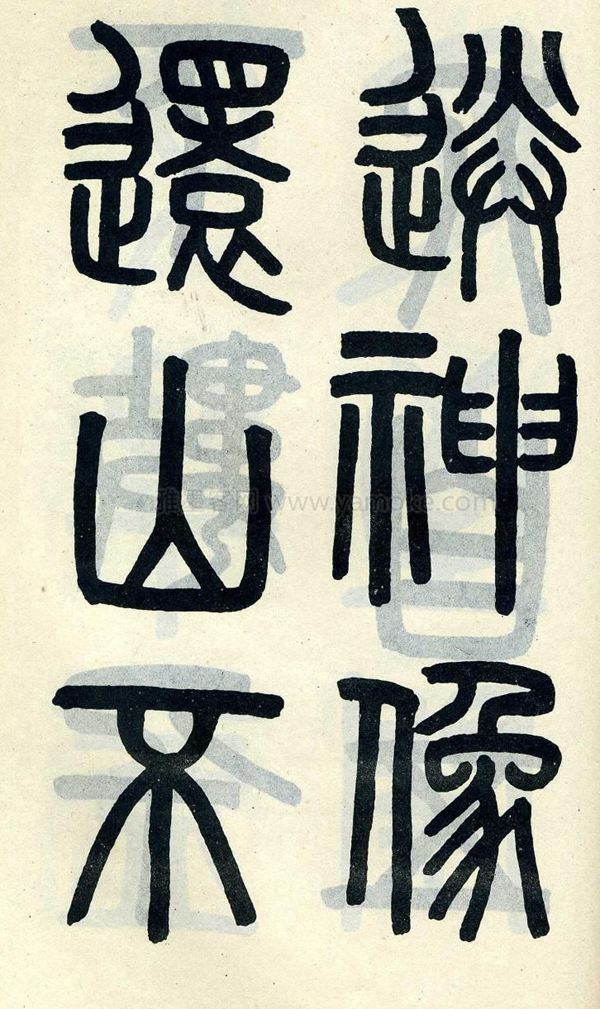 送神像
還山不
雅墨客网 www.yamoke.com